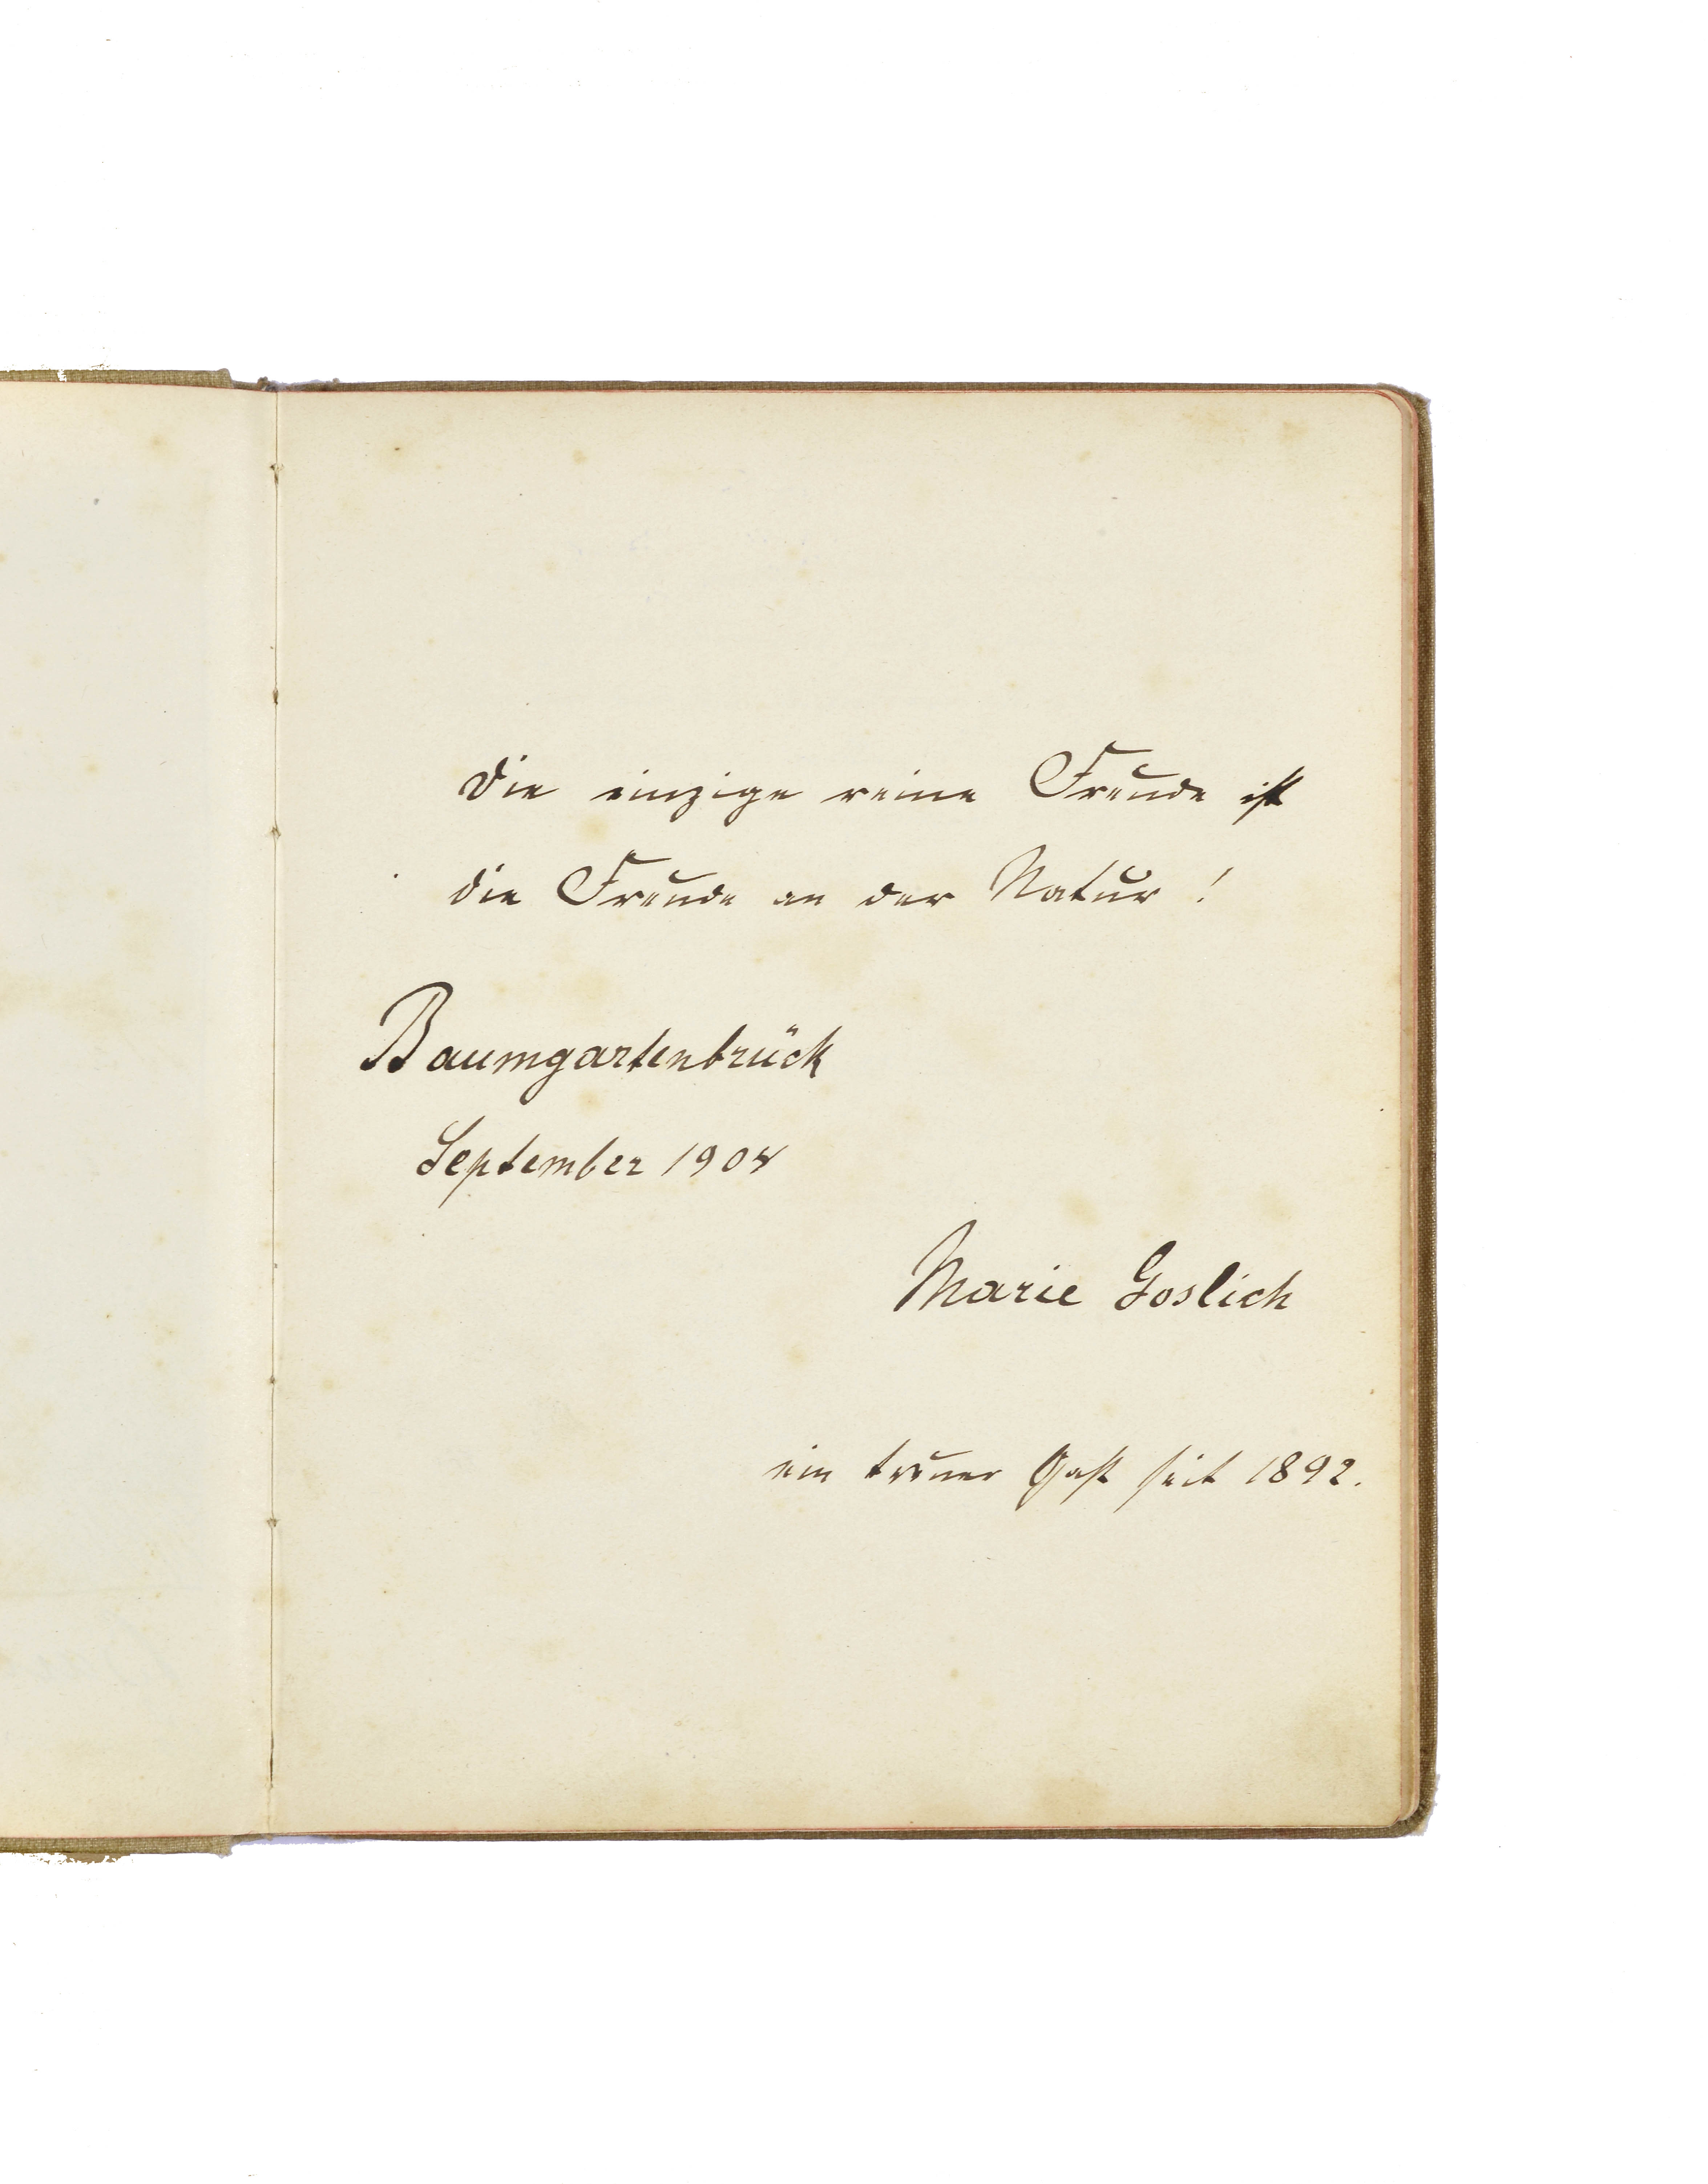 Die einzige reine Freude ist
die Freude an der Natur!
Baumgartenbrück
September 1904
Marie Goslich
ein treuer Gast seit 1892.